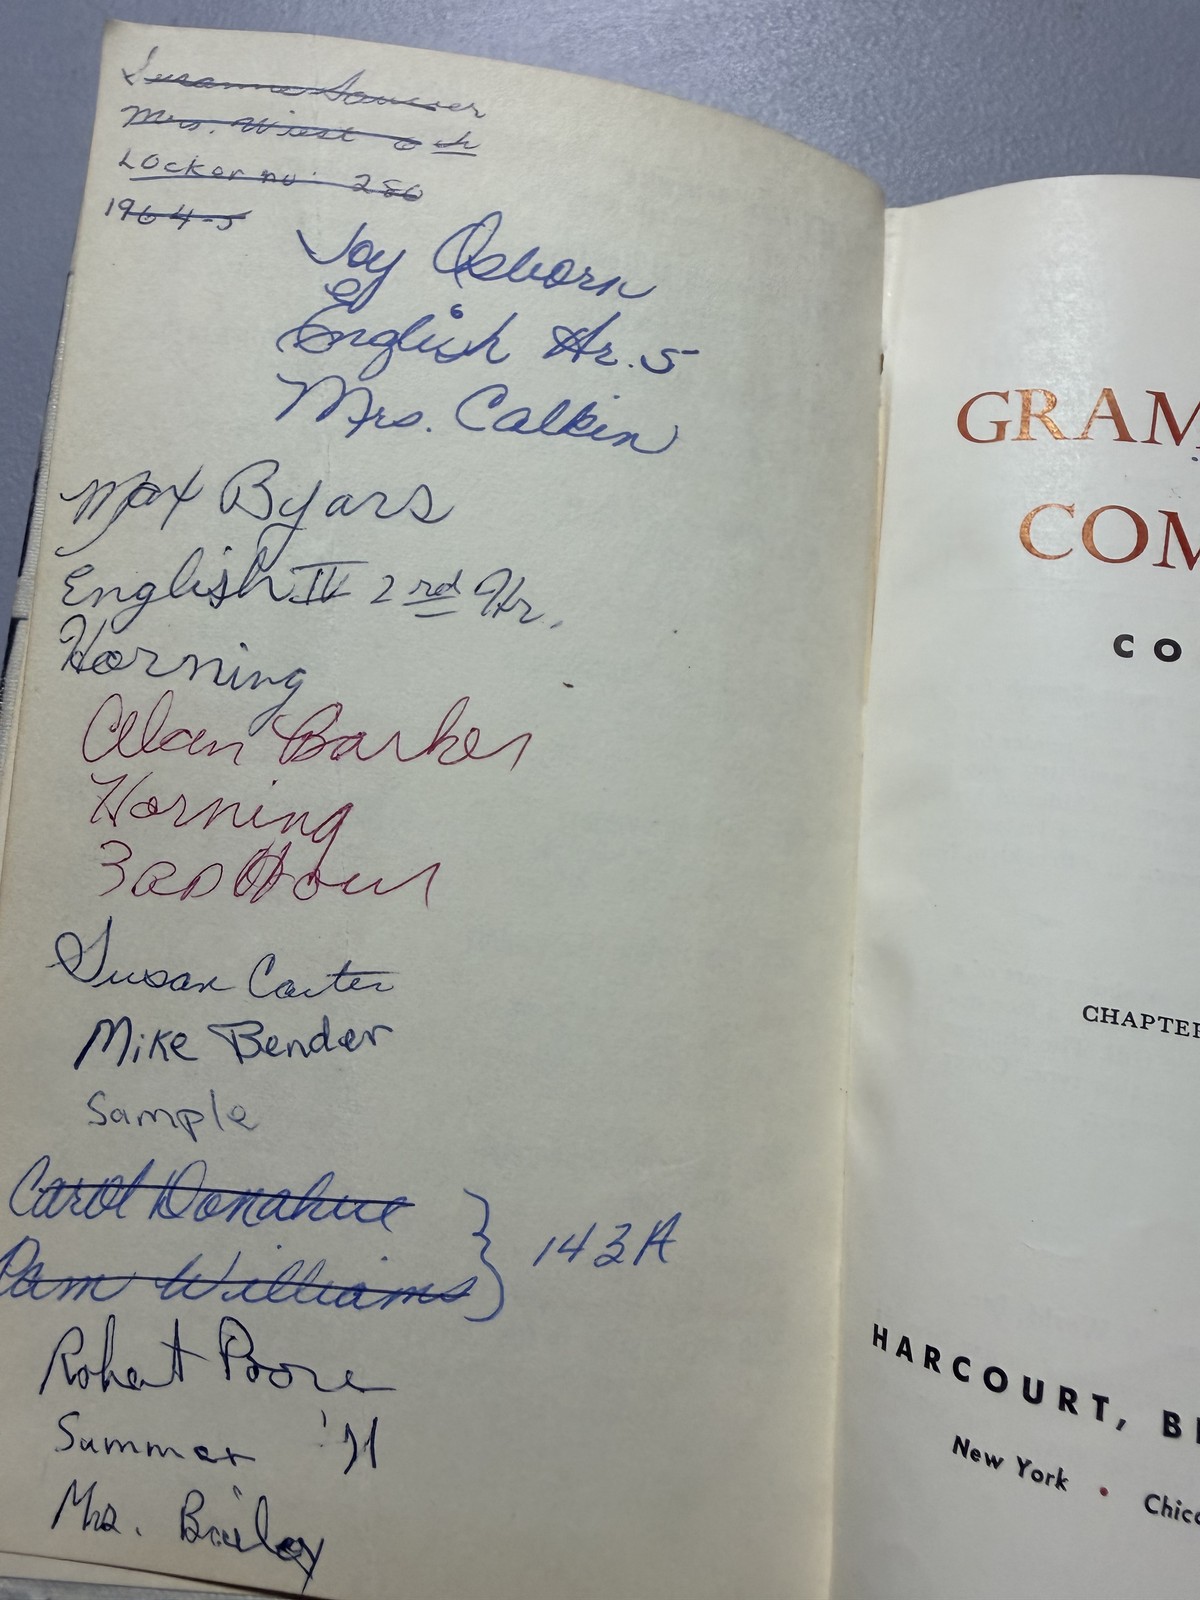 Susanne
Mrs. Wiest 6th
Locker no. 280
1964-5
Joy Osborn
English Hr. 5
Mrs. Calkin
Max Byars
English IV 2rd Hr.
Horning
Alan Barker
Horning
3RD Hour
Susan Carter
Mike Bender
Sample
Carol Donahue
Pam Williams
143A
Robert Poore
Summer '71
Mrs. Bailey
GRAM
COM
CO
CHAPTER
HARCOURT, B
New York • Chic